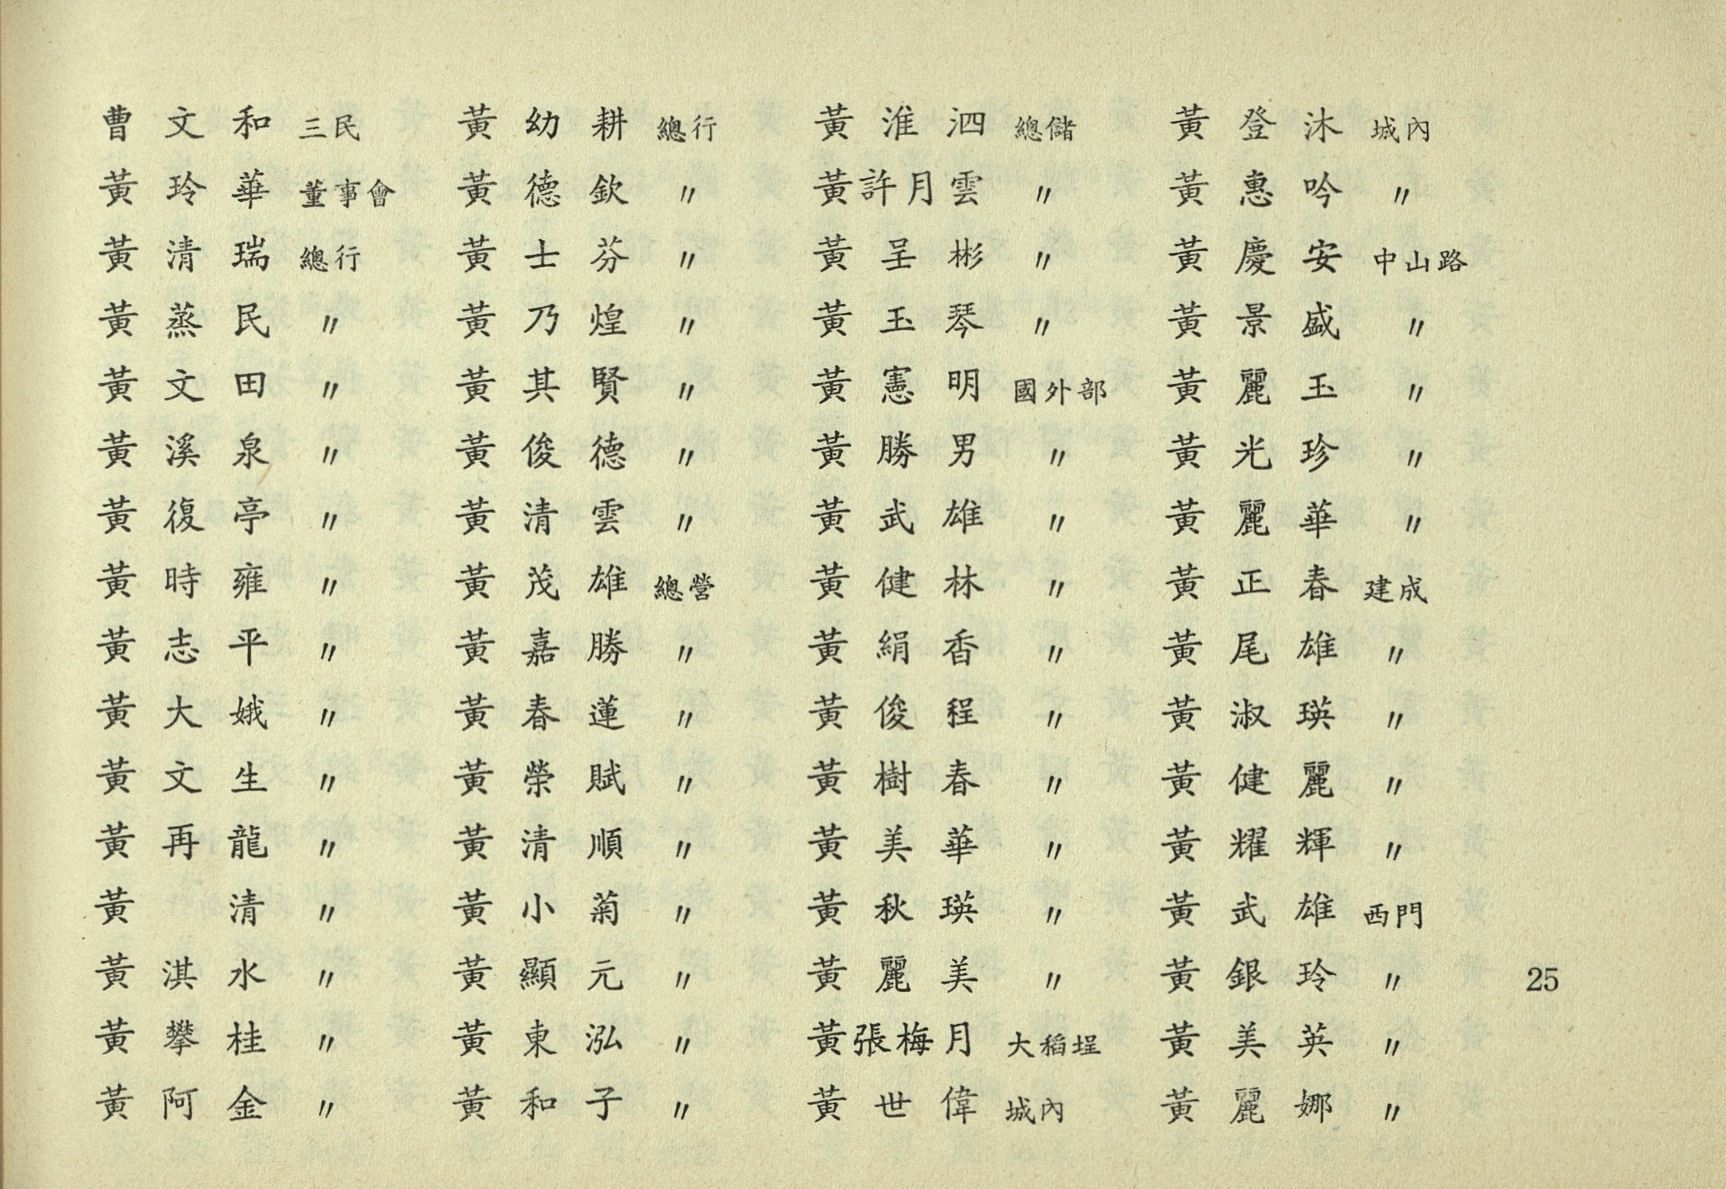 曹文和 三民
黃玲華 董事會
黃清瑞 總行
黃蒸民 〃
黃文田 〃
黃溪泉 〃
黃復亭 〃
黃時雍 〃
黃志平 〃
黃大娥 〃
黃文生 〃
黃再龍 〃
黃清 〃
黃淇水 〃
黃攀桂 〃
黃阿金 〃
黃幼耕 總行
黃德欽 〃
黃士芬 〃
黃乃煌 〃
黃其賢 〃
黃俊德 〃
黃清雲 〃
黃茂雄 總營
黃嘉勝 〃
黃春蓮 〃
黃榮賦 〃
黃清順 〃
黃小菊 〃
黃顯元 〃
黃東泓 〃
黃和子 〃
黃淮泗 總儲
黃許月雲 〃
黃呈彬 〃
黃玉琴 〃
黃憲明 國外部
黃勝男 〃
黃武雄 〃
黃健林 〃
黃絹香 〃
黃俊程 〃
黃樹春 〃
黃美華 〃
黃秋瑛 〃
黃麗美 〃
黃張梅月 大稻埕
黃世偉 城內
黃登沐 城內
黃惠吟 〃
黃慶安 中山路
黃景盛 〃
黃麗玉 〃
黃光珍 〃
黃麗華 〃
黃正春 建成
黃尾雄 〃
黃淑瑛 〃
黃健麗 〃
黃耀輝 〃
黃武雄 西門
黃銀玲 〃
黃美英 〃
黃麗娜 〃
25